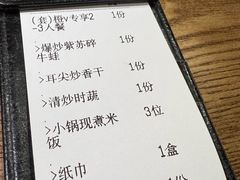 (套)橙v专享2 1份
-3人餐
>爆炒紫苏碎 1份
牛蛙
>耳尖炒香干 1份
>清炒时蔬 1份
>小锅现煮米 3位
饭
1盒
>纸巾
1份